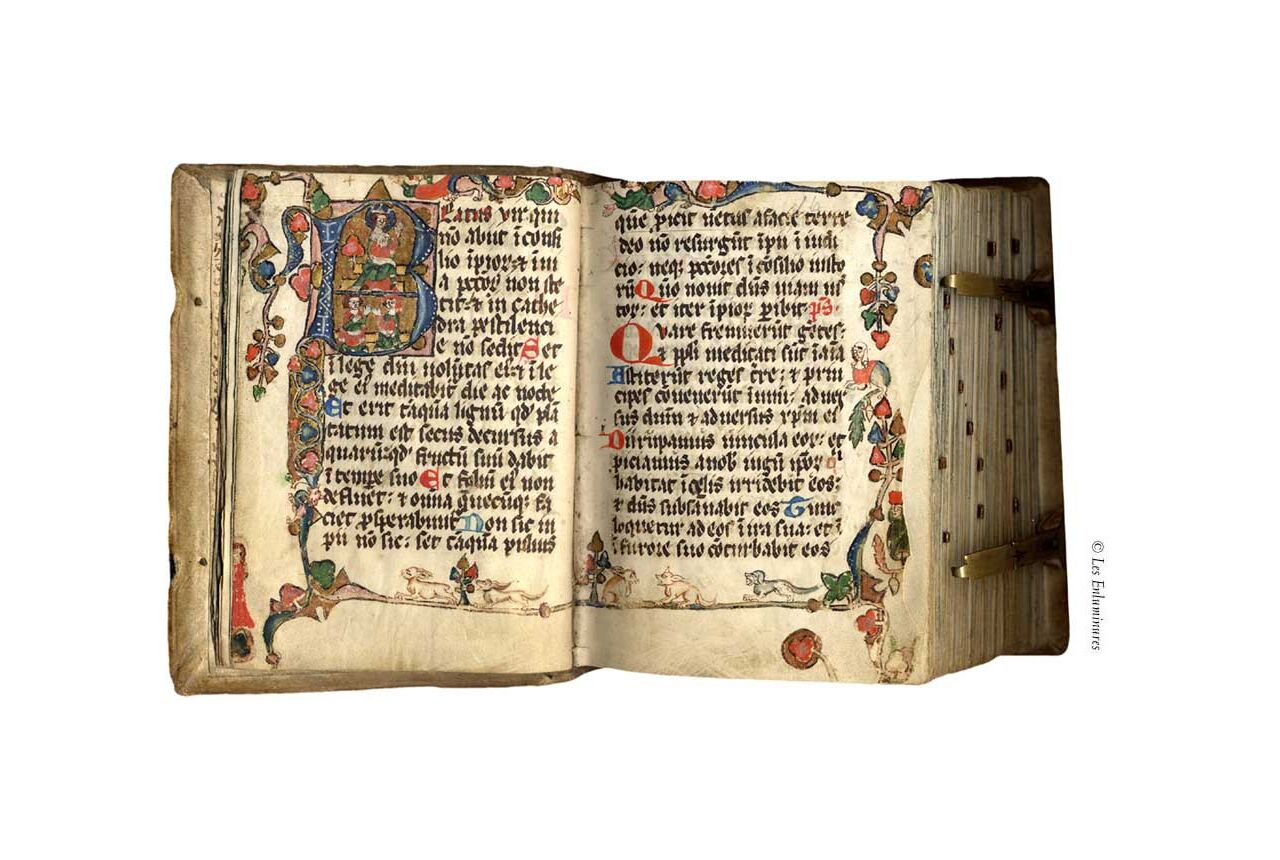 Beatus vir qui
nō abiit ī consi
lio īpior⁊ ⁊ ī ui
a pctor̄ non ste
tit: ⁊ in cathe
dra pestilenci
e nō sedit Set
ī lege dn̄i uolūtas ei⁊ ⁊ ī le
ge ei⁊ meditabit᷑ die ac nocte
Et erit tāquā lignū qd̓ plā
tatum est secus decursus a
quarū: qd̓ fructū suū dabit
ī tempe suo Et foliū ei⁊ non
defluet: ⁊ om̄ia quecūq; fa
ciet ꝓsperabūt᷑ Non sic im
pii nō sic: set tāquā puluis
quē ꝓicit uētus a facie terre
Ideo nō resurgūt īpii ī iudi
cio: neq; pctōres ī cōsilio iusto
rū Quō nouit dn̄s uiam ius
tor⁊: et iter īpior⁊ ꝑibit ps̄.
Quare fremuerūt gētes:
⁊ pp̄li meditati sūt īāīa
Astiterūt reges tr̄e: ⁊ prin
cipes cōuenerūt ī unū: aduer
sus dn̄m ⁊ aduersus xp̄m ei⁊
Dirūpamus uincula eor⁊: et
ꝓiciamus a nob̄ iugū ip̄or⁊ Q
habitat ī celis irridebit eos:
⁊ dn̄s subsānabit eos Tunc
loquetur ad eos ī ira sua: et ī
furore suo cōturbabit eos
© Les Enluminures